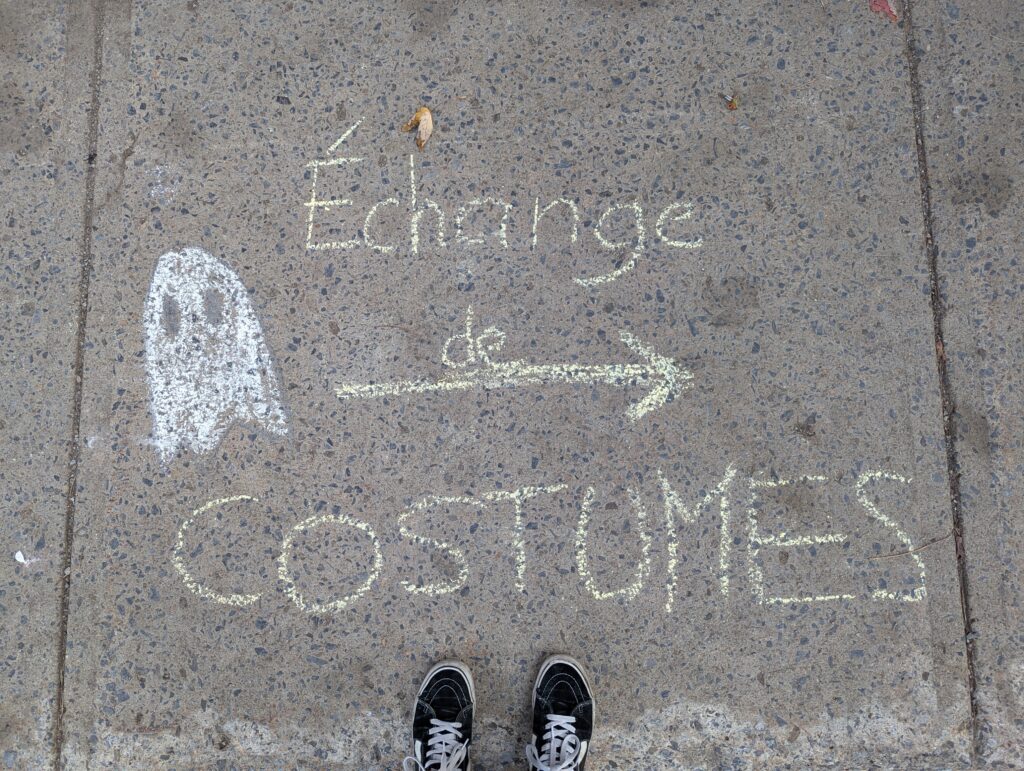 Échange
de
COSTUMES